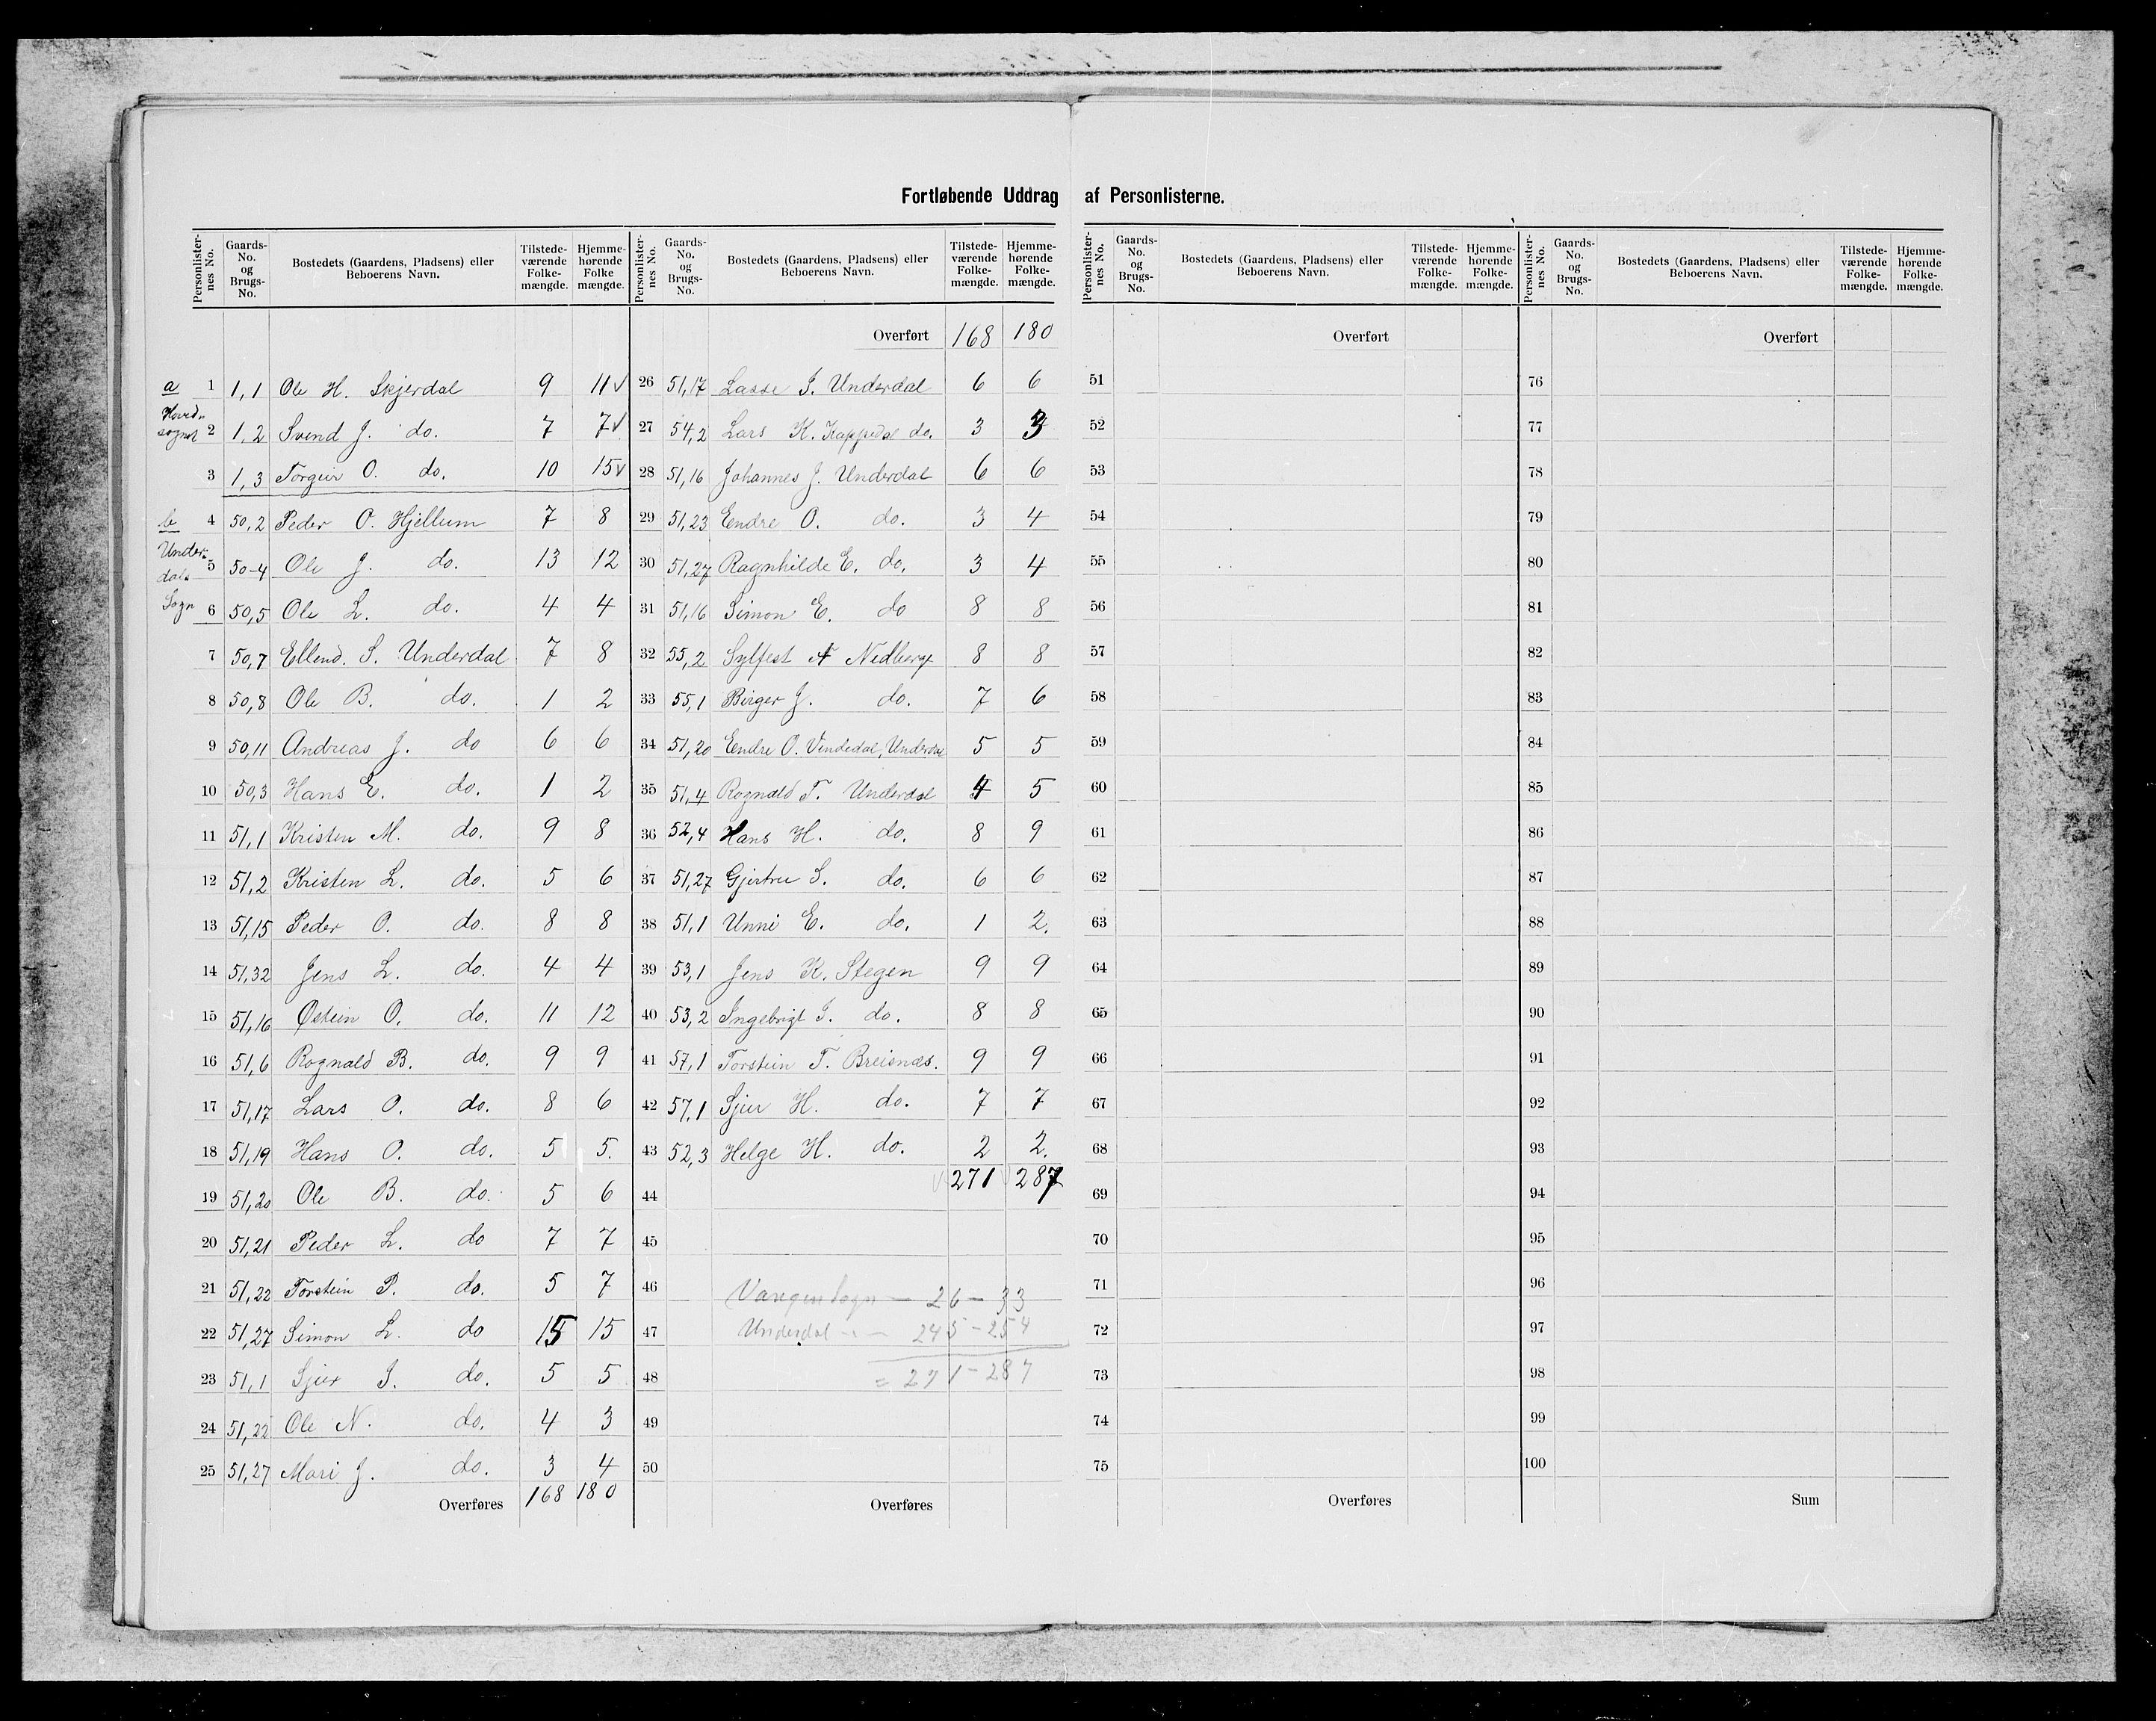 Fortløbende Uddrag af Personlisterne.
Personlisternes No. | Gaards-No. og Brugs-No. | Bostedets (Gaardens, Pladsens) eller Beboerens Navn. | Tilstedeværende Folkemængde. | Hjemmehørende Folkemængde.
a Hovedsognet
1 1,1 Ole H. Skjerdal 9 11 ✓
2 1,2 Svend J. do. 7 7 ✓
3 1,3 Torgeir O. do. 10 15 ✓
b Underdals Sogn
4 50,2 Peder O. Hjellum 7 8
5 50-4 Ole J. do. 13 12
6 50,5 Ole L. do. 4 4
7 50,7 Ellend. S. Underdal 7 8
8 50,8 Ole B. do. 1 2
9 50,11 Andreas J. do 6 6
10 50,3 Hans E. do. 1 2
11 51,1 Kristen M. do. 9 8
12 51,2 Kristen L. do. 5 6
13 51,15 Peder O. do. 8 8
14 51,32 Jens L. do. 4 4
15 51,16 Østein O. do. 11 12
16 51,6 Rognald B. do. 9 9
17 51,17 Lars O. do. 8 6
18 51,19 Hans O. do. 5 5.
19 51,20 Ole B. do. 5 6
20 51,21 Peder L. do 7 7
21 51,22 Torstein P. do. 5 7
22 51,27 Simon L. do 15 15
23 51,1 Sjur S. do. 5 5
24 51,22 Ole N. do. 4 3
25 51,27 Mari J. do. 3 4
Overføres 168 180
Personlisternes No. | Gaards-No. og Brugs-No. | Bostedets (Gaardens, Pladsens) eller Beboerens Navn. | Tilstedeværende Folkemængde. | Hjemmehørende Folkemængde.
Overført 168 180
26 51,17 Lasse J. Underdal 6 6
27 54,2 Lars K. Kappedal do. 3 3
28 51,16 Johannes J. Underdal 6 6
29 51,23 Endre O. do. 3 4
30 51,27 Ragnhilde E. do. 3 4
31 51,16 Simon E. do 8 8
32 55,2 Sylfest A Nedberg 8 8
33 55,1 Birger J. do. 7 6
34 51,20 Endre O. Vindedal, Underdal 5 5
35 51,4 Rognald T. Underdal 4 5
36 52,4 Hans H. do. 8 9
37 51,27 Gjertru S. do. 6 6
38 51,1 Unni E. do. 1 2.
39 53,1 Jens K. Stegen 9 9
40 53,2 Ingebrigt J. do. 8 8
41 57,1 Torstein T. Breisnæs. 9 9
42 57,1 Sjur H. do. 7 7
43 52,3 Helge H. do. 2 2.
44 271 287
45
46 Vangens sogn — 26 — 33
47 Underdal - " - 245 - 254
48 = 271 - 287
49
50
Overføres
Personlisternes No. | Gaards-No. og Brugs-No. | Bostedets (Gaardens, Pladsens) eller Beboerens Navn. | Tilstedeværende Folkemængde. | Hjemmehørende Folkemængde.
Overført
51
52
53
54
55
56
57
58
59
60
61
62
63
64
65
66
67
68
69
70
71
72
73
74
75
Overføres
Personlisternes No. | Gaards-No. og Brugs-No. | Bostedets (Gaardens, Pladsens) eller Beboerens Navn. | Tilstedeværende Folkemængde. | Hjemmehørende Folkemængde.
Overført
76
77
78
79
80
81
82
83
84
85
86
87
88
89
90
91
92
93
94
95
96
97
98
99
100
Sum